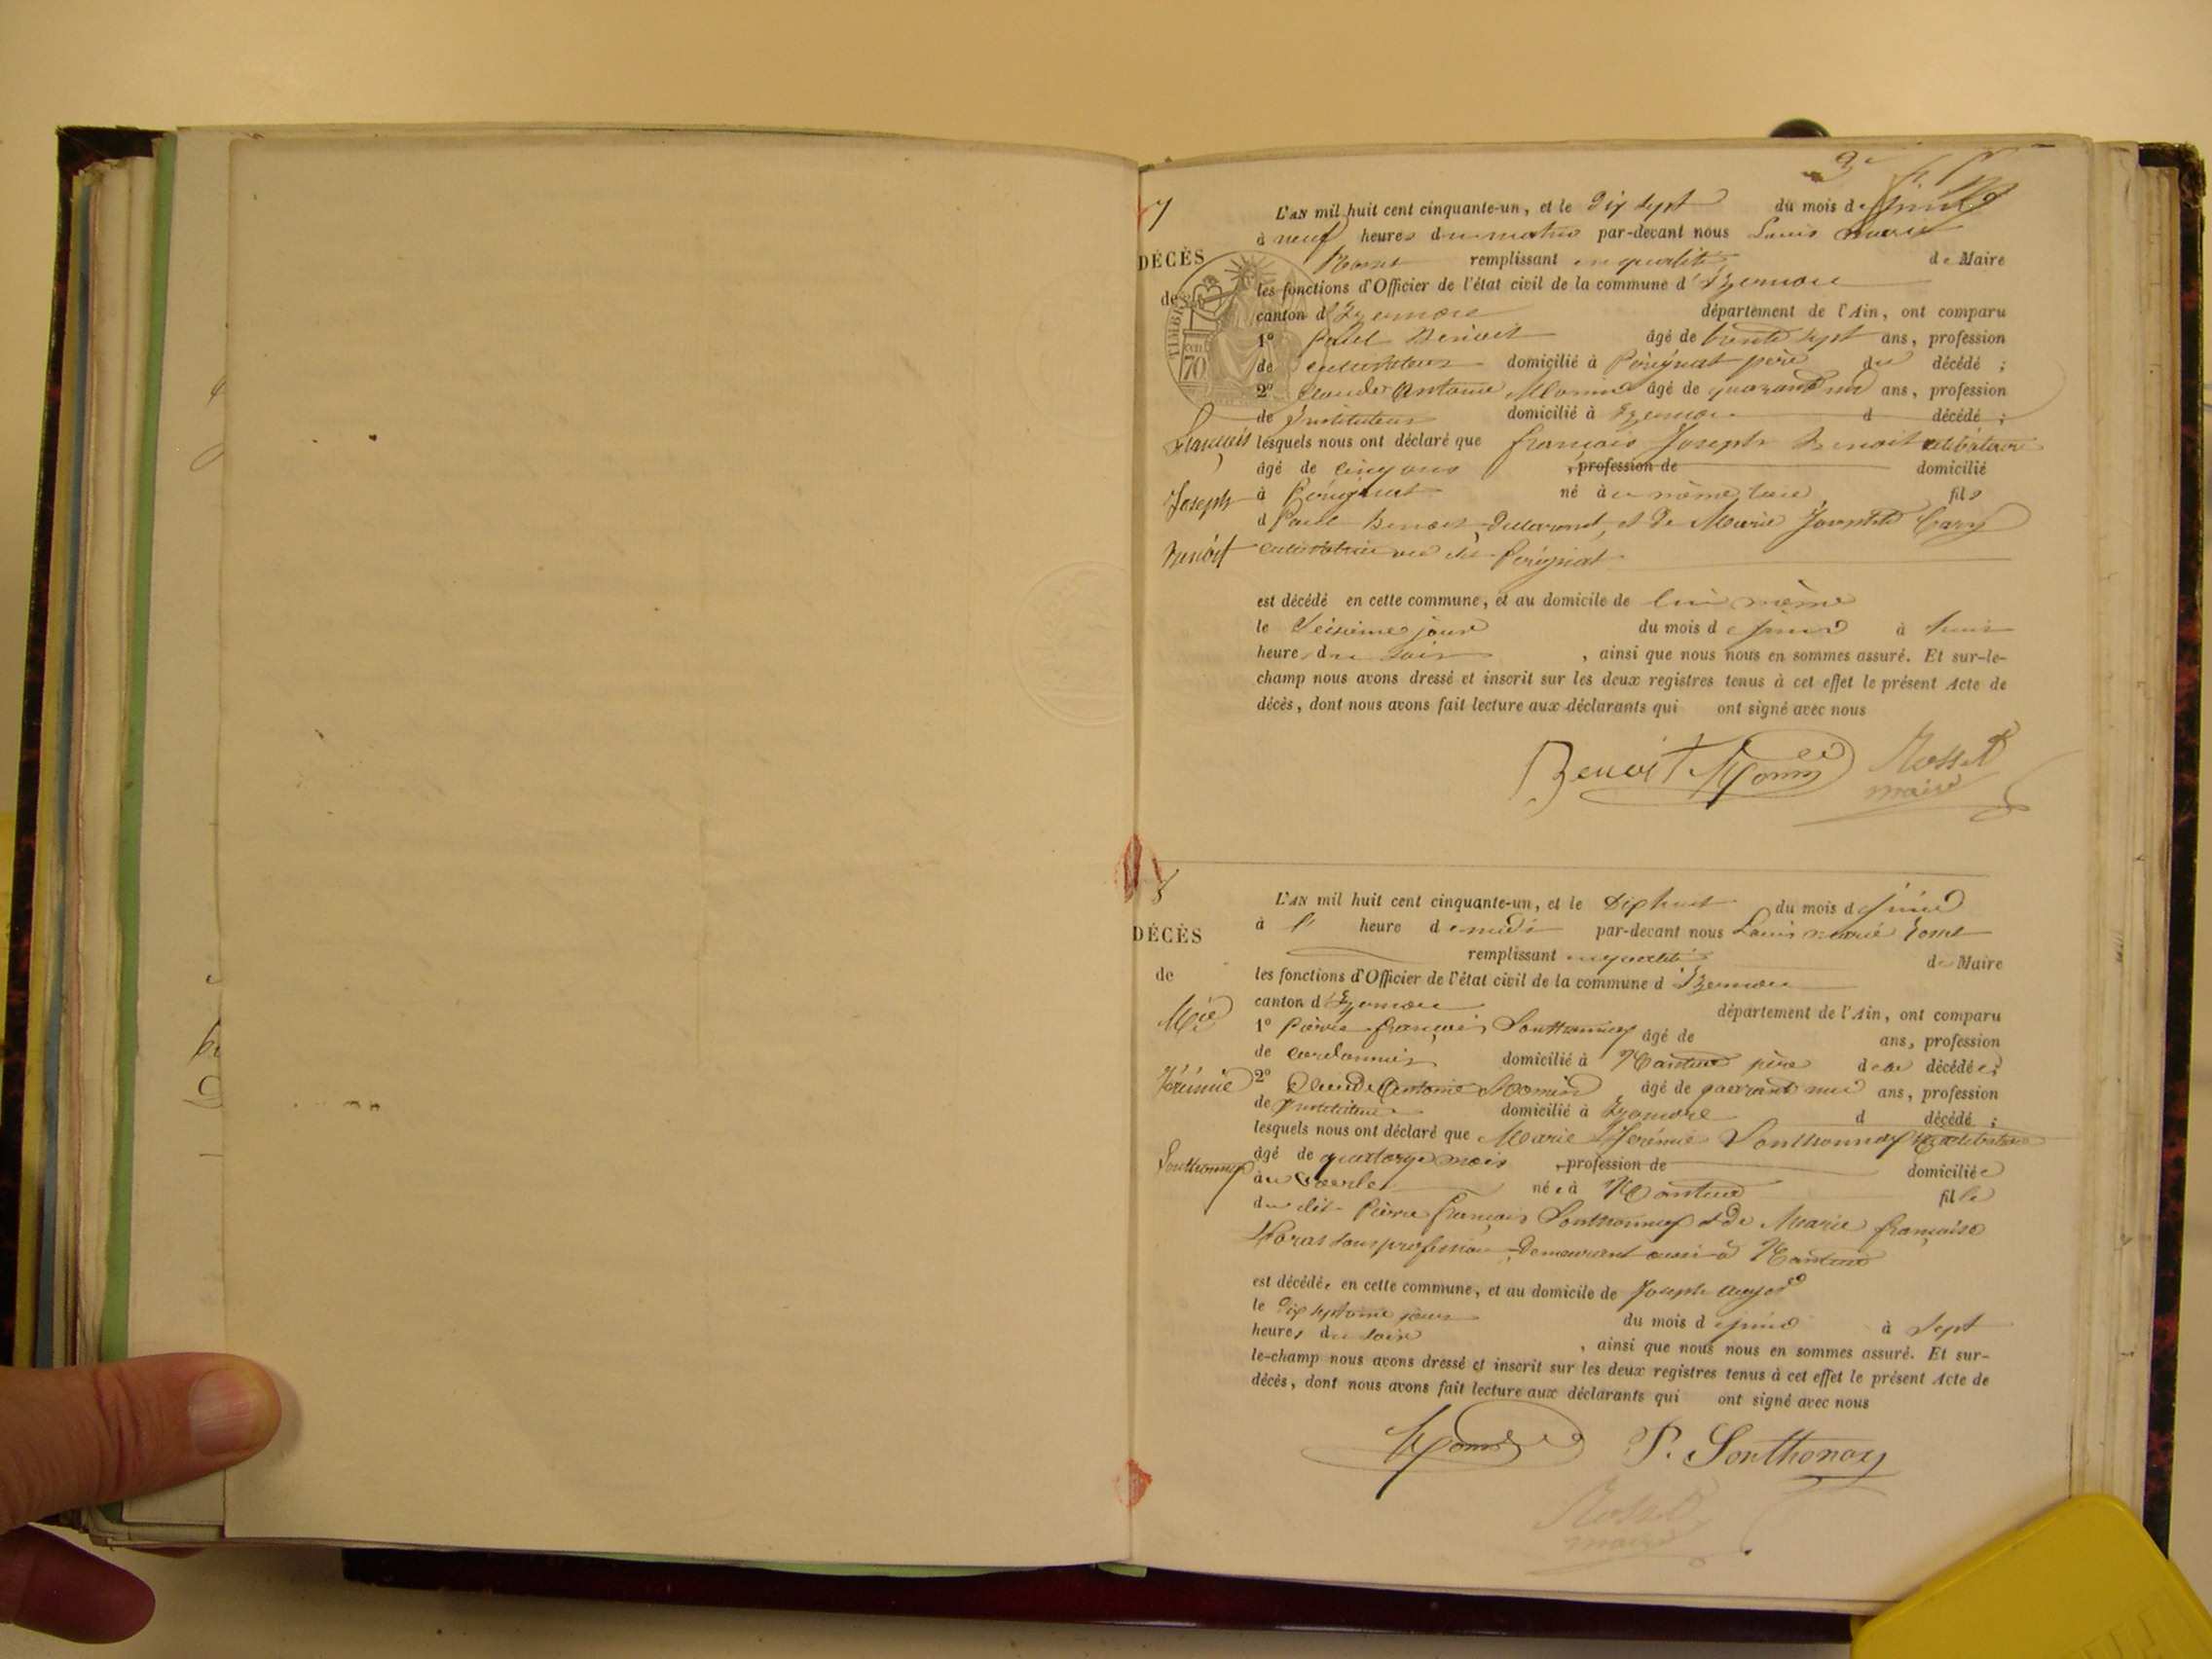 7
L'AN mil huit cent cinquante-un, et le Dix sept du mois de juin
à neuf heures du matin par-devant nous Louis Marie
DÉCÈS
remplissant en qualité de Maire
de
les fonctions d'Officier de l'état civil de la commune d'Izernore
canton d'Izernore département de l'Ain, ont comparu
TIMBRE
70
1° Paul Benoit âgé de trente sept ans, profession
de cultivateur domicilié à Pérignat père du décédé ;
2° Claude Antoine Monin âgé de quarante un ans, profession
de Instituteur domicilié à Izernore d décédé ;
François
lesquels nous ont déclaré que François Joseph Benoit célibataire
âgé de cinq ans , profession de domicilié
Joseph
à Pérignat né au même lieu fils
de Paul Benoit et de Marie
Benoit
Pérignat
est décédé en cette commune, et au domicile de lui même
le seizième jour du mois de juin à huit
heures du soir , ainsi que nous nous en sommes assuré. Et sur-le-
champ nous avons dressé et inscrit sur les deux registres tenus à cet effet le présent Acte de
décès, dont nous avons fait lecture aux déclarants qui ont signé avec nous
Benoit Monin Rosset
maire
8
L'AN mil huit cent cinquante-un, et le Dix huit du mois de juin
à l' heure de midi par-devant nous Louis Marie
DÉCÈS
remplissant en qualité de Maire
de
les fonctions d'Officier de l'état civil de la commune d'Izernore
canton d'Izernore département de l'Ain, ont comparu
Mie
1° Pierre François Sonthonnax âgé de ans, profession
de cordonnier domicilié à Nantua père de la décédée ;
Jérémie
2° Claude Antoine Monin âgé de quarante un ans, profession
de Instituteur domicilié à Izernore d décédé ;
lesquels nous ont déclaré que Marie Jérémie Sonthonnax célibataire
Sonthonnax
âgé de quatorze mois , profession de domiciliée
née à Nantua fille
du dit Pierre François Sonthonnax et de Marie Françoise
sans profession demeurant aussi à Nantua
est décédée en cette commune, et au domicile de Joseph
le dix septième jour du mois de juin à sept
heures du soir , ainsi que nous nous en sommes assuré. Et sur-
le-champ nous avons dressé et inscrit sur les deux registres tenus à cet effet le présent Acte de
décès, dont nous avons fait lecture aux déclarants qui ont signé avec nous
Monin P. Sonthonax
Rosset
maire